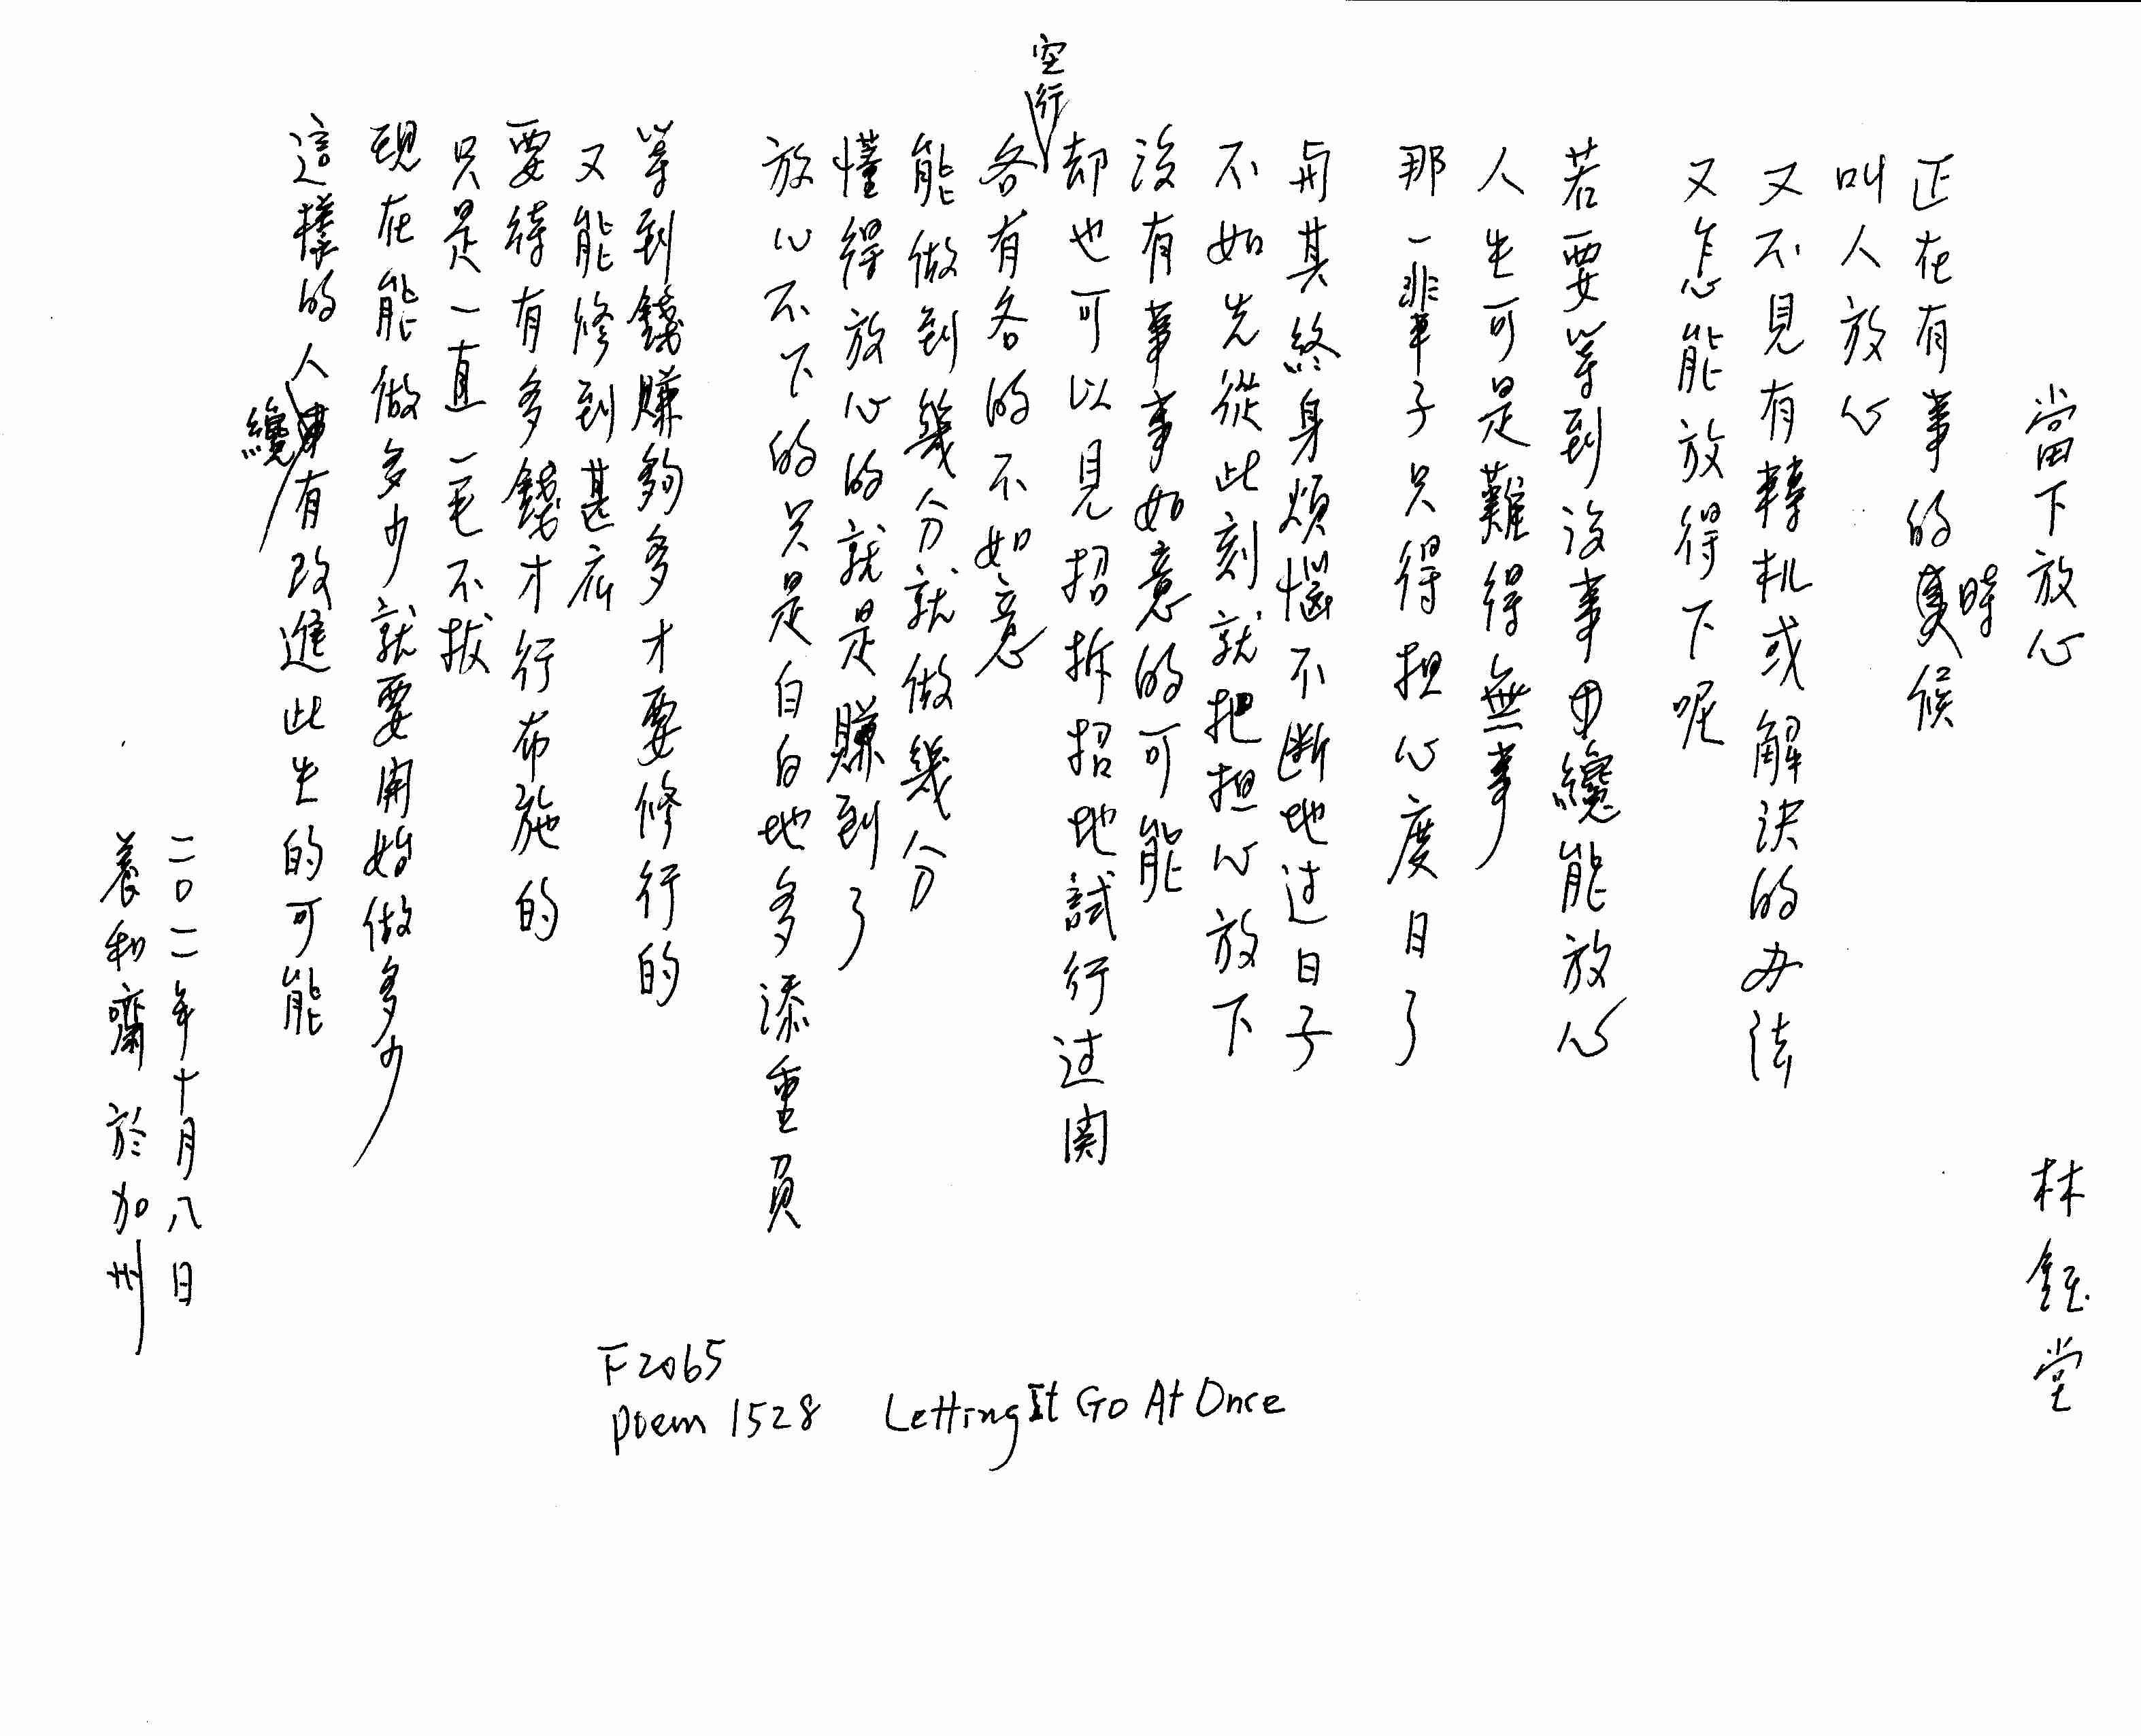 當下放心
林鈺堂
正在有事的時候
叫人放心
又不見有轉机或解決的办法
又怎能放得下呢
若要等到沒事纔能放心
人生可是難得無事
那一輩子只得担心度日了
與其終身煩惱不斷地过日子
不如先從此刻就把担心放下
沒有事事如意的可能
却也可以見招拆招地試行过関
空行
各有各的不如意
能做到幾分就做幾分
懂得放心的就是賺到了
放心不下的只是白白地多添重負
等到錢賺夠多才要修行的
又能修到甚麼
要待有多錢才行布施的
只是一直一毛不拔
現在能做多少就要開始做多少
這樣的人纔有改進此生的可能
二〇一一年十月八日
養和齋 於加州
F2065
Poem 1528 Letting It Go At Once